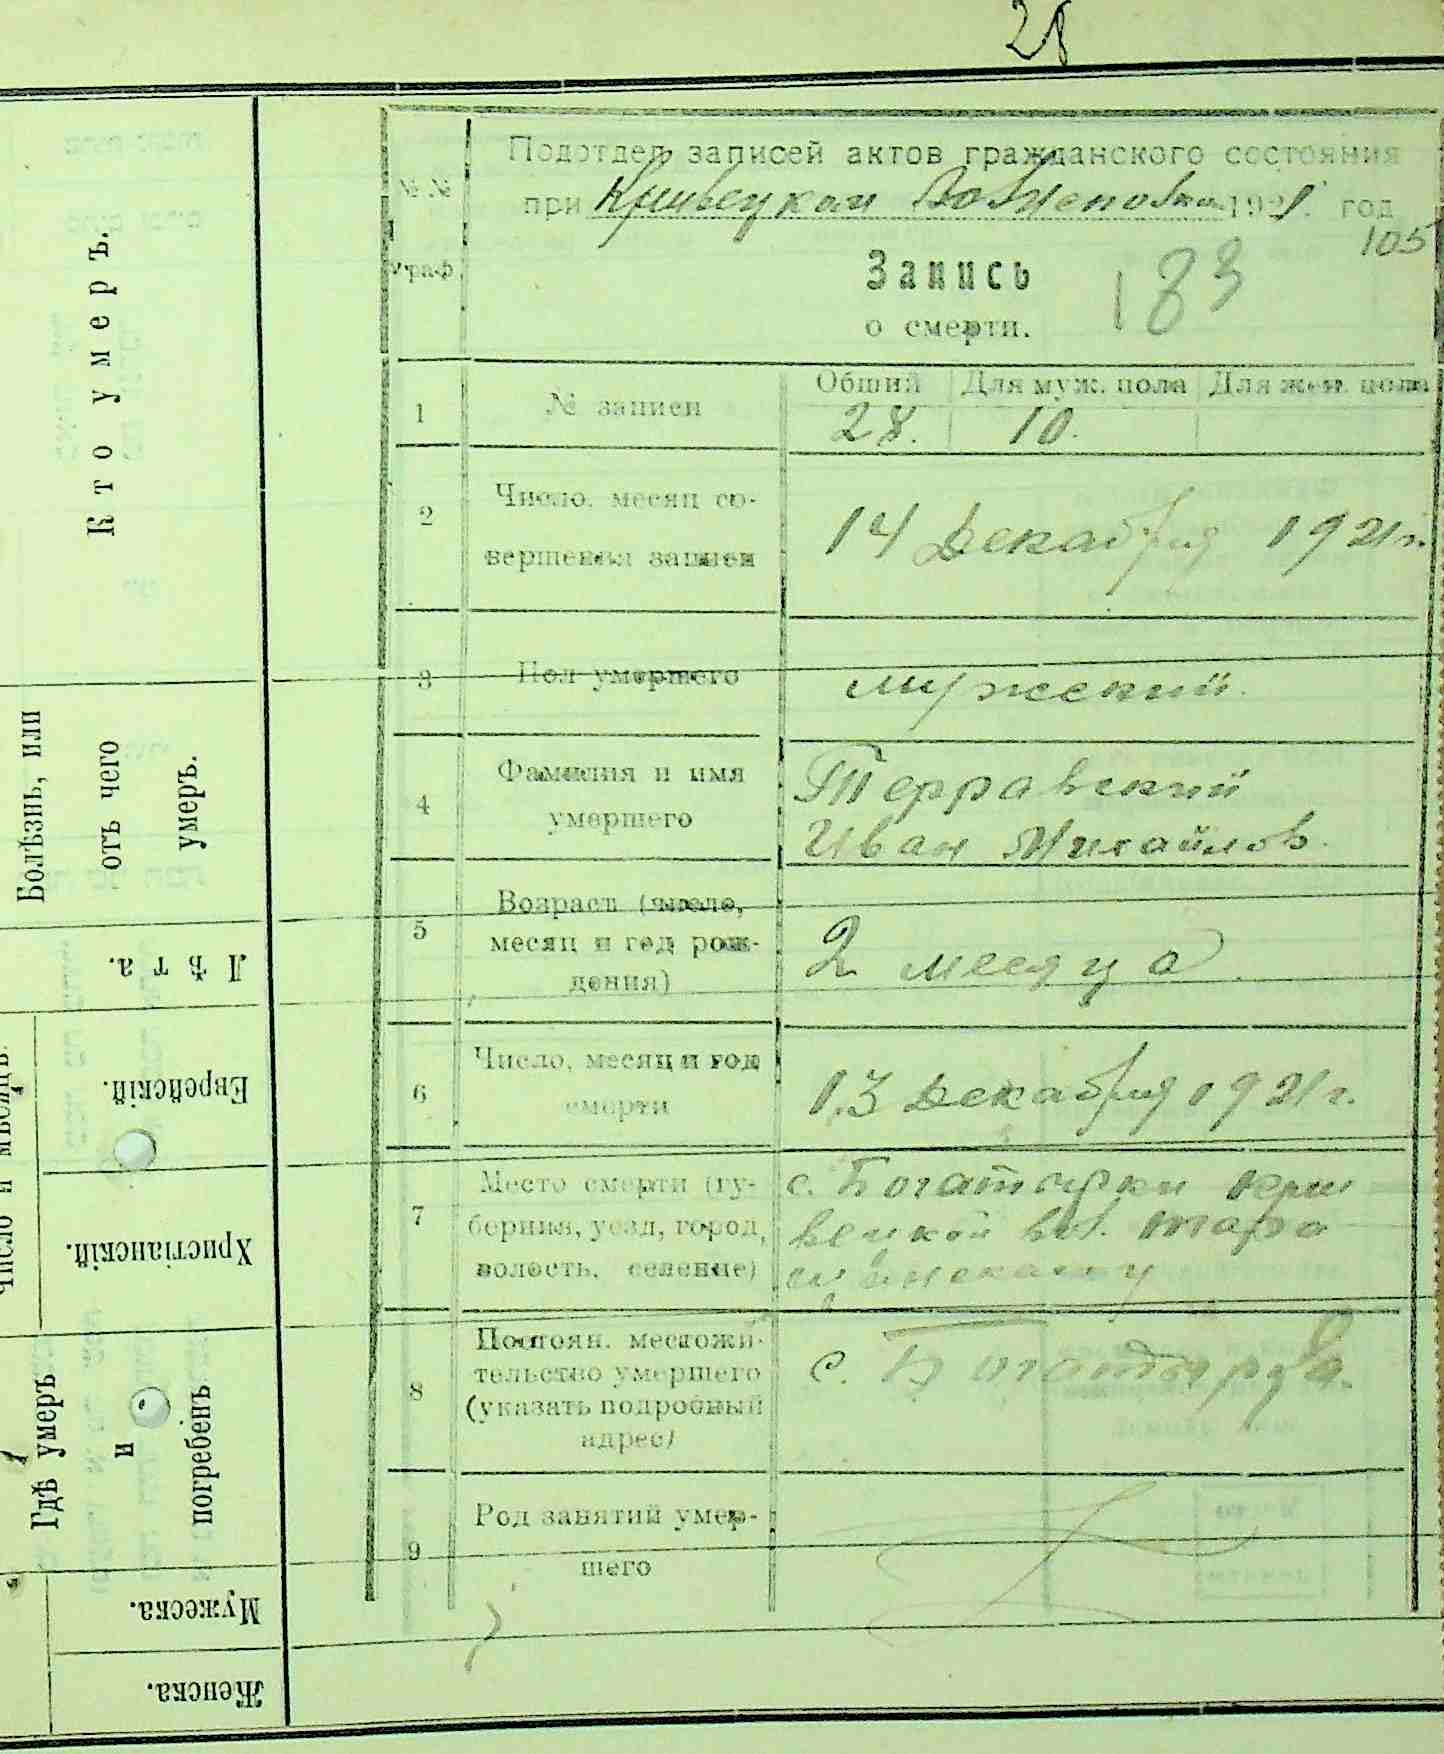 28
Подотдел записей актов гражданского состояния
при Кривецкой 1921. год
105
№ №
граф.
Запись
183
о смерти.
1 № записи Общий Для муж. пола Для жен. пола
28. 10.
2 Число, месяц со-
вершения записи
14 Декабря 1921 г.
3 Пол умершего мужеский.
4 Фамилия и имя
умершего
Терравский
Иван Михайлов.
5 Возраст (число,
месяц и год рож-
дения)
2 месяца.
6 Число, месяц и год
смерти
13 Декабря 1921 г.
7 Место смерти (гу-
берния, уезд, город,
волость, селение)
с. Богатырки Кри
вецкой вол. Тара
щанскаго у
8 Постоян. местожи-
тельство умершего
(указать подробный
адрес)
с. Богатырка.
9 Род занятий умер-
шего
Кто умеръ.
Болѣзнь, или
отъ чего
умеръ.
Лѣта.
Число и мѣсяцъ.
Еврейскій.
Христіанскій.
Гдѣ умеръ
и
погребенъ
Мужеска.
Женска.